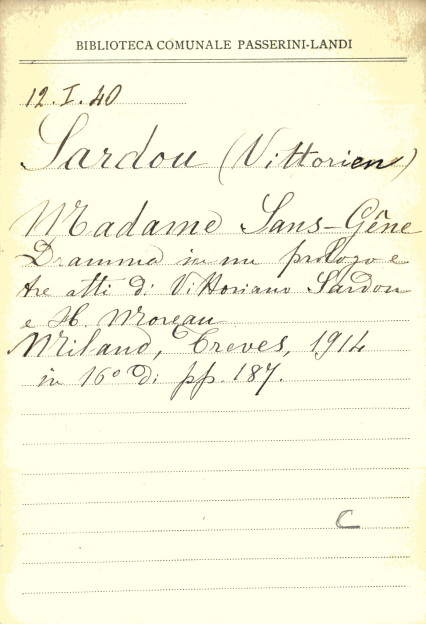 BIBLIOTECA COMUNALE PASSERINI-LANDI
12.I.40
Sardou (Vittorien)
Madame Sans-Gêne
Dramma in un prologo e
tre atti di Vittoriano Sardou
e H. Moreau
Milano, Treves, 1914
in 16° di pp. 187.
C